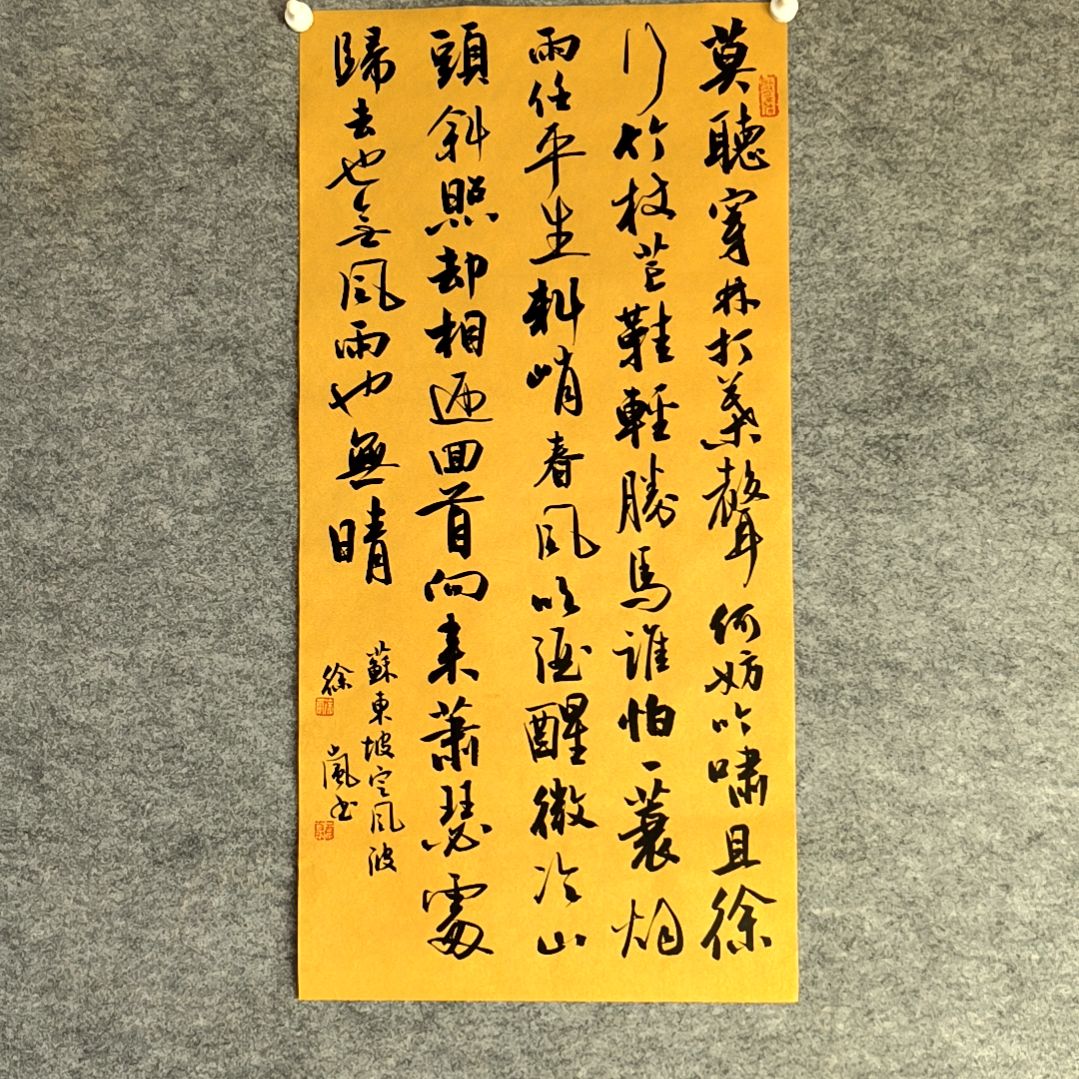 莫聽穿林打葉聲何妨吟嘯且徐
行竹杖芒鞋輕勝馬誰怕一蓑烟
雨任平生料峭春風吹酒醒微冷山
頭斜照却相迎回首向来蕭瑟處
歸去也無風雨也無晴
蘇東坡定風波
徐嵐书